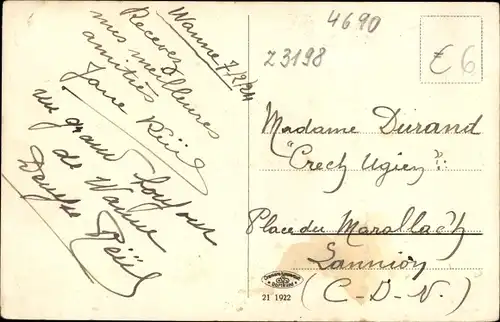 Wanne 7/2/24
Recevez
mes meilleures
amitiés
Jane
un grand bonjour
de Wanne
4690
Z3198
€6
Madame Durand
"Crech Ugien"
Place du Marallac'h
Lannion
(C-D-N.)
21 1922